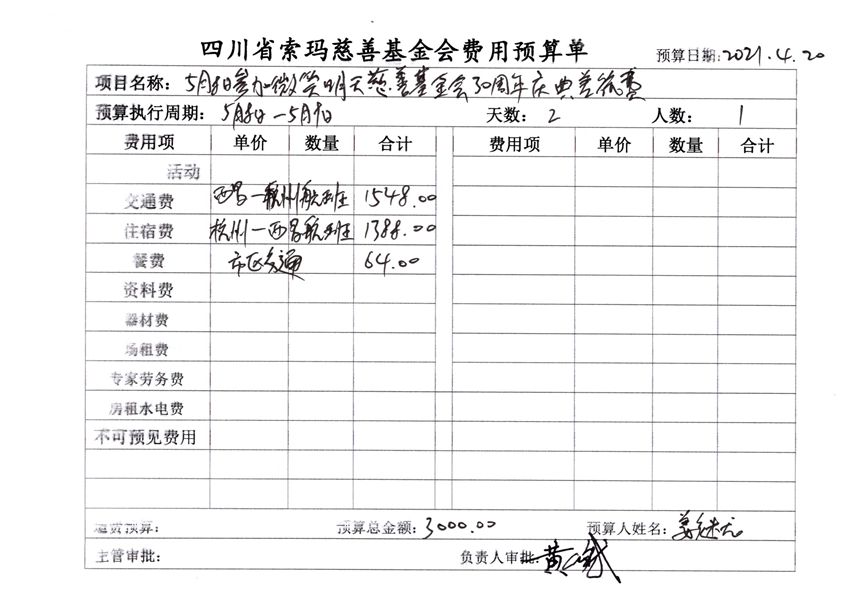 四川省索玛慈善基金会费用预算单
预算日期:2021.4.20
项目名称: 5月8日参加微笑明天慈善基金会30周年庆典差旅费
预算执行周期: 5月8日—5月9日 天数: 2 人数: 1
费用项 单价 数量 合计 费用项 单价 数量 合计
活动
交通费 西昌—杭州航班 1548.00
住宿费 杭州—西昌航班 1388.00
餐费 市区交通 64.00
资料费
器材费
场租费
专家劳务费
房租水电费
不可预见费用
预算总金额: 3000.00 预算人姓名:
主管审批: 负责人审批: